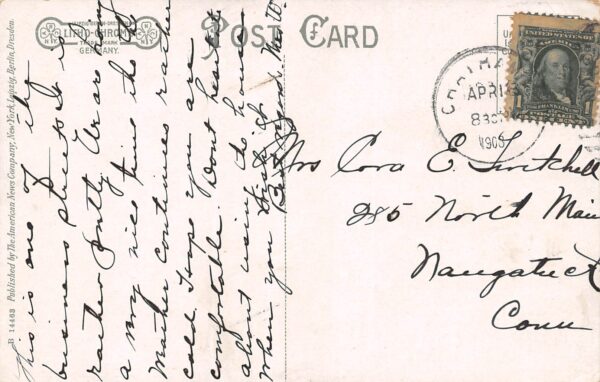 LITHO-CHROME
TRADE MARK
GERMANY.
POST CARD
B 14463 Published by The American News Company, New York, Leipzig, Berlin, Dresden.
This is one of the
business streets. It is
rather pretty. We are having
a very nice time the
weather continues rather
cold. I hope you are
comfortable. Dont hesitate
about using the house
when you
UNITED STATES OF
AMERICA
FRANKLIN
APR
8
1908
Mrs Cora E. Twitchell
285 North Main
Naugatuck
Conn